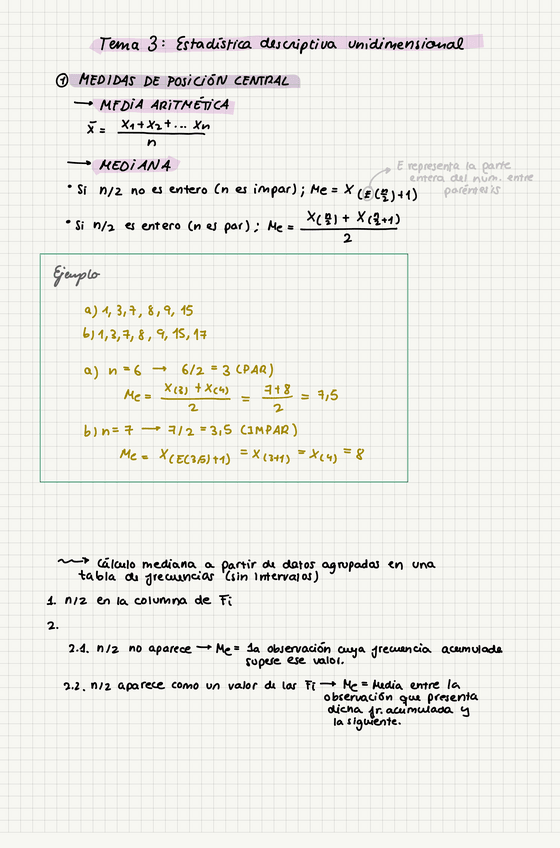 Tema 3: Estadística descriptiva unidimensional
① MEDIDAS DE POSICIÓN CENTRAL
→ MEDIA ARITMÉTICA
x̄ = (x1 + x2 + ... xn) / n
→ MEDIANA
E representa la parte
entera del núm. entre
paréntesis
• Si n/2 no es entero (n es impar); Me = X(E(n/2)+1)
• Si n/2 es entero (n es par); Me = (X(n/2) + X(n/2+1)) / 2
Ejemplo
a) 1, 3, 7, 8, 9, 15
b) 1, 3, 7, 8, 9, 15, 17
a) n = 6 → 6/2 = 3 (PAR)
Me = (X(3) + X(4)) / 2 = (7+8) / 2 = 7,5
b) n = 7 → 7/2 = 3,5 (IMPAR)
Me = X(E(3,5)+1) = X(3+1) = X(4) = 8
⇝ Cálculo mediana a partir de datos agrupadas en una
tabla de frecuencias (sin intervalos)
1. n/2 en la columna de Fi
2.
2.1. n/2 no aparece → Me = 1a observación cuya frecuencia acumulada
supere ese valor.
2.2. n/2 aparece como un valor de las Fi → Me = Media entre la
observación que presenta
dicha fr. acumulada y
la siguiente.